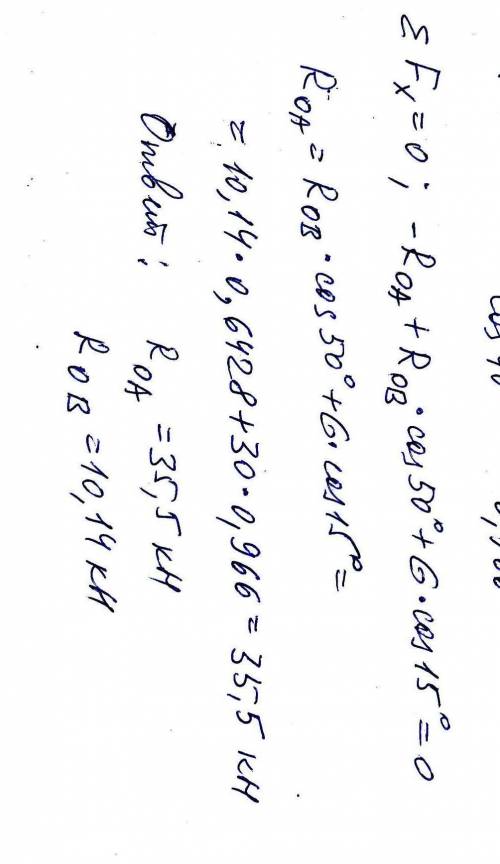 ΣFx = 0; -R_OA + R_OB · cos 50° + G · cos 15° = 0
R_OA = R_OB · cos 50° + G · cos 15° =
= 10,14 · 0,6428 + 30 · 0,966 = 35,5 кН
Ответ: R_OA = 35,5 кН
R_OB = 10,14 кН